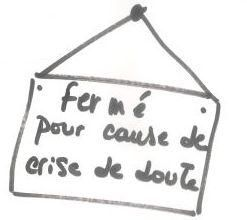 fermé
pour cause de
crise de doute